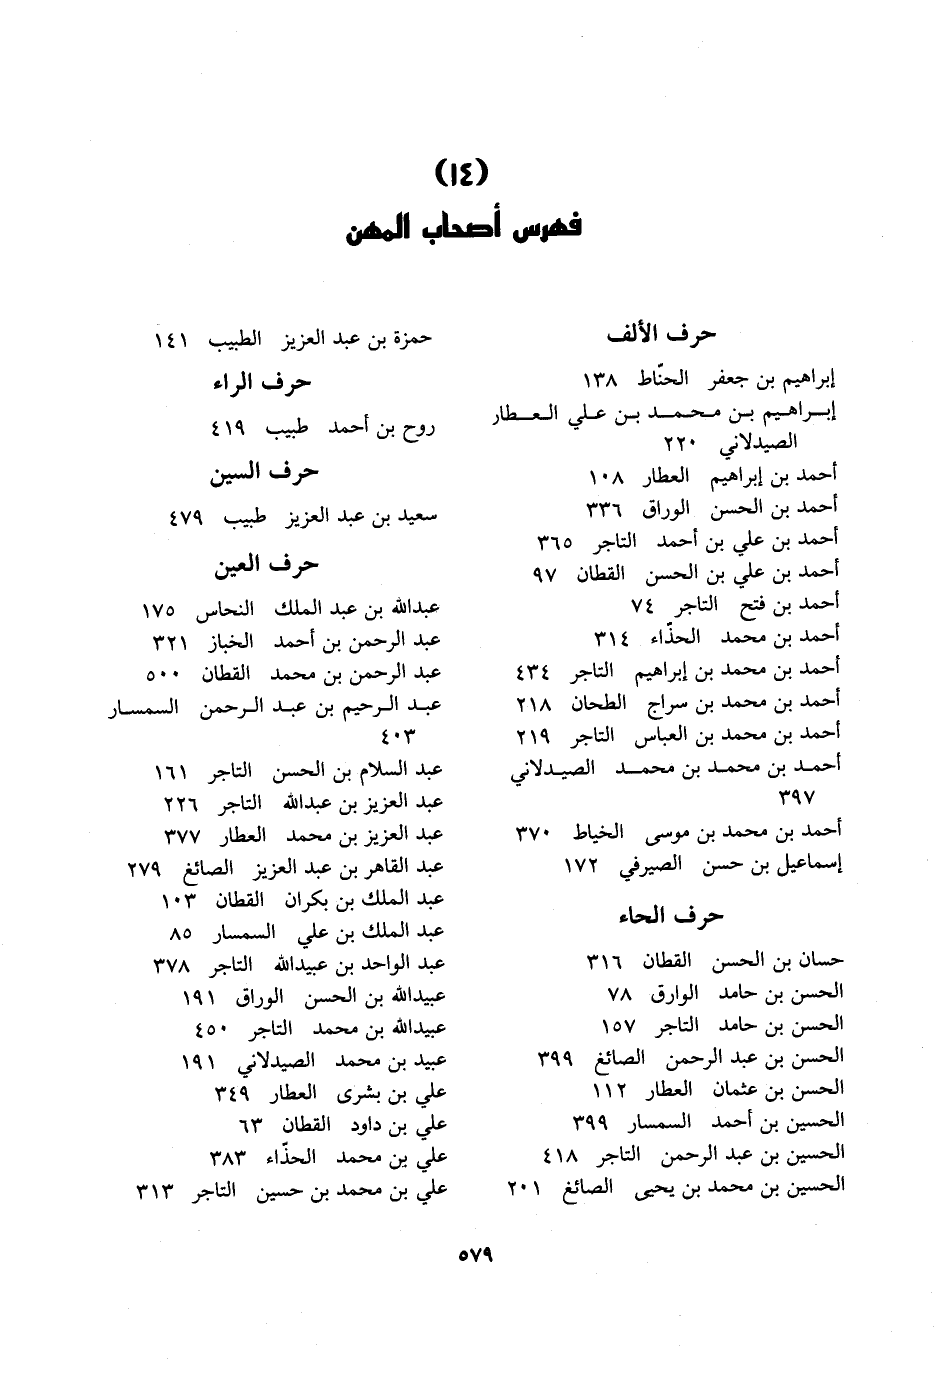 (١٤)
فهرس أصحاب المهن
حرف الألف
إبراهيم بن جعفر الحنّاط ١٣٨
إبراهيم بن محمد بن علي العطار
الصيدلاني ٢٢٠
أحمد بن إبراهيم العطار ١٠٨
أحمد بن الحسن الوراق ٣٣٦
أحمد بن علي بن أحمد التاجر ٣٦٥
أحمد بن علي بن الحسن القطان ٩٧
أحمد بن فتح التاجر ٧٤
أحمد بن محمد الحذّاء ٣١٤
أحمد بن محمد بن إبراهيم التاجر ٤٣٤
أحمد بن محمد بن سراج الطحان ٢١٨
أحمد بن محمد بن العباس التاجر ٢١٩
أحمد بن محمد بن محمد الصيدلاني
٣٩٧
أحمد بن محمد بن موسى الخياط ٣٧٠
إسماعيل بن حسن الصيرفي ١٧٢
حرف الحاء
حسان بن الحسن القطان ٣١٦
الحسن بن حامد الوارق ٧٨
الحسن بن حامد التاجر ١٥٧
الحسن بن عبد الرحمن الصائغ ٣٩٩
الحسن بن عثمان العطار ١١٢
الحسين بن أحمد السمسار ٣٩٩
الحسين بن عبد الرحمن التاجر ٤١٨
الحسين بن محمد بن يحيى الصائغ ٢٠١
حمزة بن عبد العزيز الطبيب ١٤١
حرف الراء
روح بن أحمد طبيب ٤١٩
حرف السين
سعيد بن عبد العزيز طبيب ٤٧٩
حرف العين
عبدالله بن عبد الملك النحاس ١٧٥
عبد الرحمن بن أحمد الخباز ٣٢١
عبد الرحمن بن محمد القطان ٥٠٠
عبد الرحيم بن عبد الرحمن السمسار
٤٠٣
عبد السلام بن الحسن التاجر ١٦١
عبد العزيز بن عبدالله التاجر ٢٢٦
عبد العزيز بن محمد العطار ٣٧٧
عبد القاهر بن عبد العزيز الصائغ ٢٧٩
عبد الملك بن بكران القطان ١٠٣
عبد الملك بن علي السمسار ٨٥
عبد الواحد بن عبيدالله التاجر ٣٧٨
عبيدالله بن الحسن الوراق ١٩١
عبيدالله بن محمد التاجر ٤٥٠
عبيد بن محمد الصيدلاني ١٩١
علي بن بشرى العطار ٣٤٩
علي بن داود القطان ٦٣
علي بن محمد الحذّاء ٣٨٣
علي بن محمد بن حسين التاجر ٣١٣
٥٧٩